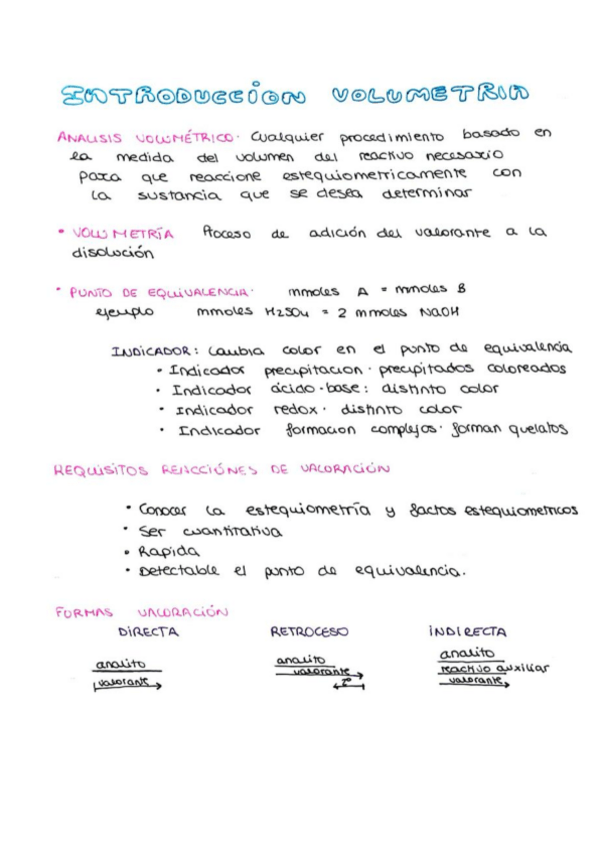 INTRODUCCION VOLUMETRIA
ANALISIS VOLUMÉTRICO· Cualquier procedimiento basado en
la medida del volumen del reactivo necesario
para que reaccione estequiometricamente con
la sustancia que se desea determinar
• VOLUMETRÍA Proceso de adición del valorante a la
disolución
• PUNTO DE EQUIVALENCIA· mmoles A = mmoles B
ejemplo mmoles H2SO4 = 2 mmoles NaOH
INDICADOR: Cambia color en el punto de equivalencia
• Indicador precipitacion· precipitados coloreados
• Indicador ácido-base: distinto color
• Indicador redox· distinto color
• Indicador formacion complejos· forman quelatos
REQUISITOS REACCIÓNES DE VALORACIÓN
• Conocer la estequiometría y factos estequiometricos
• Ser cuantitativa
• Rapida
• Detectable el punto de equivalencia.
FORMAS VALORACIÓN
DIRECTA RETROCESO INDIRECTA
analito analito analito
valorante valorante reactivo auxiliar
2º valorante